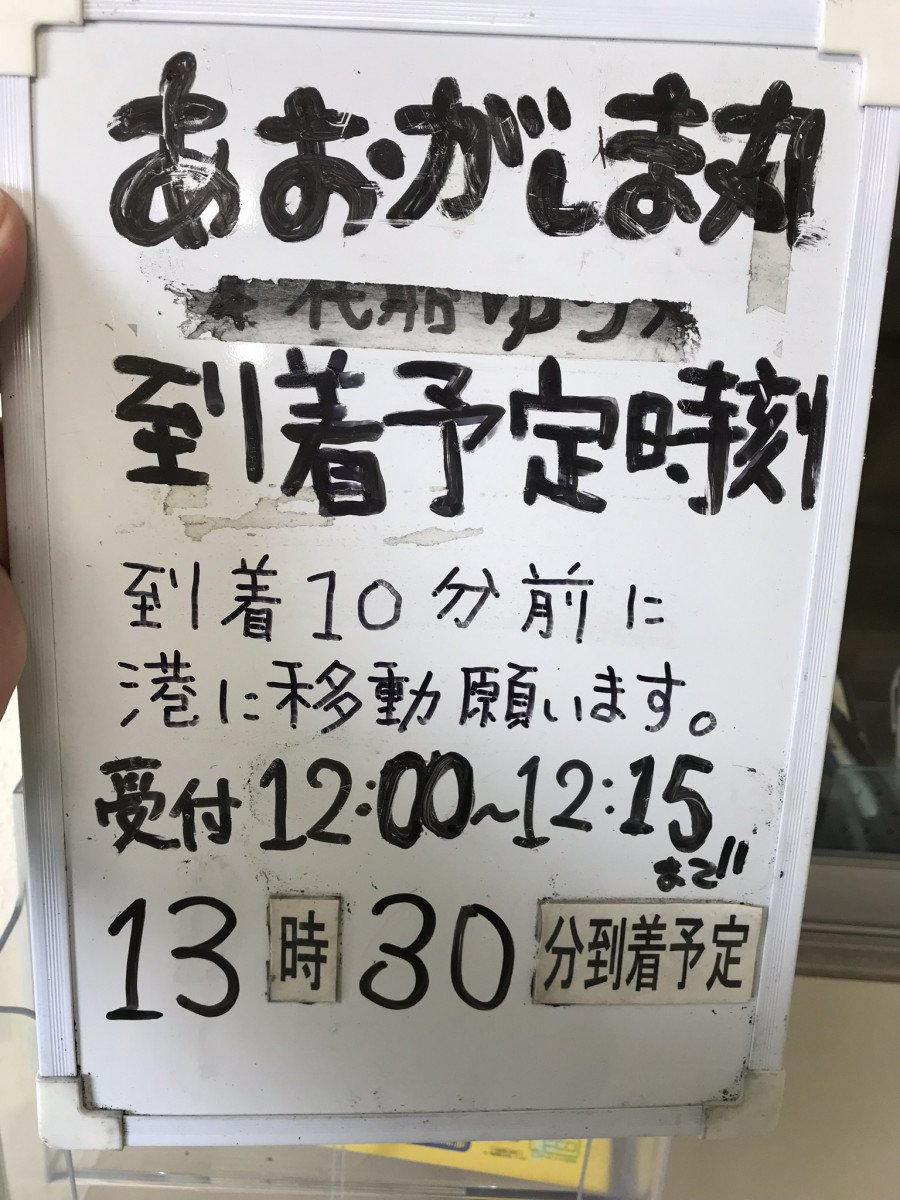 あおがしま丸
代船 ゆり
到着予定時刻
到着10分前に
港に移動願います。
受付12:00~12:15
まで!!
13時30分到着予定